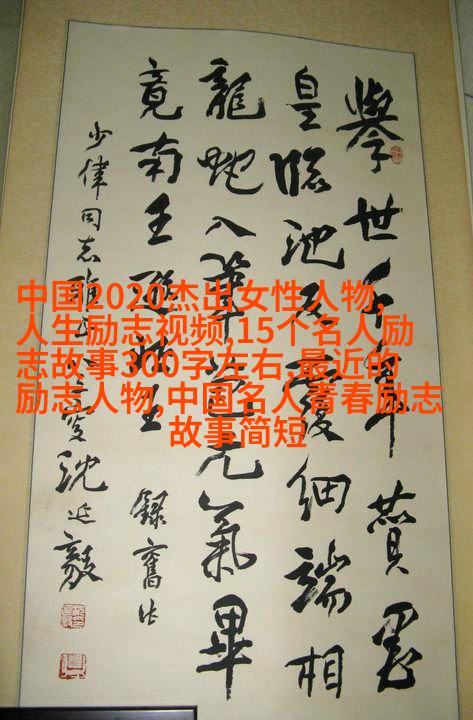 中国2020杰出女性人物,
人生励志视频,15个名人励
志故事300字左右,最近的
励志人物,中国名人青春励志
故事简短
舉世千年贊墨
皇臨池反覆細端相
龍蛇入筆元氣畢
竟南王遜北王
錄舊作
少偉同志雅
沈延毅